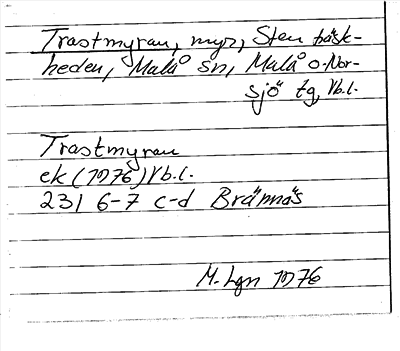 Trastmyran, myr, Stenträsk-
heden, Malå sn, Malå o. Nor-
sjö tg, Vb.l.
Trastmyran
ek (1976) Vb.l.
231 6-7 c-d Brännäs
M. Lgn 1976